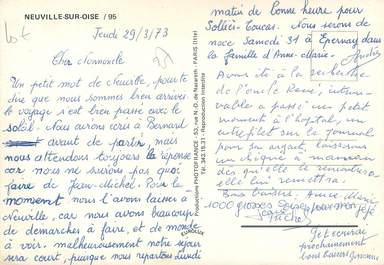 NEUVILLE-SUR-OISE / 95
Jeudi 29/3/73
Cher Normande
Un petit mot de Neuville, pour te
dire que nous sommes bien arrivés
le voyage s'est bien passé avec le
soleil. Nous avions écri à Bernard
avant de partir mais
nous attendons toujours la réponse
car nous ne savons pas quoi
faire de Jean-Michel. Pour le
moment nous l'avons laisser à
Neuville, car nous avons beaucoup
de demarches à faire, et de monde
à voir. malheureusement notre séjour
sera court, puisque nous repartons Lundi
Productions PHOTOFRANCE - 53, rue N.-D. de Nazareth PARIS (IIIe)
Tél. 343.15.31 - Reproduction interdite
EUROLUX
matin de bonne heure pour
Solliès-Toucas. Nous serons de
noce Samedi 31 à Epernay dans
la famille d'Anne-Marie.
André
Avons été à la recherche
de l'oncle René,
a passé un petit
moment à l'hopital, un
entrefilet sur le journal
pour son argent, laissons
un chèque à
dès qu'elle le rencontrera
elle lui remettra.
Bons baisers. Anne-Marie
1000 grosses bises pour mon Pépé
Michel
Je t'écrirai
prochainement
bons baisers